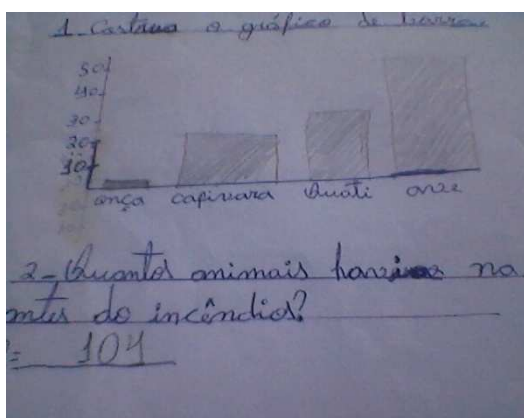 1- Costrua o gráfico de barra
50
40
30
20
10
onça capivara Quati
2- Quantos animais havia na
ntes do incêndio?
104